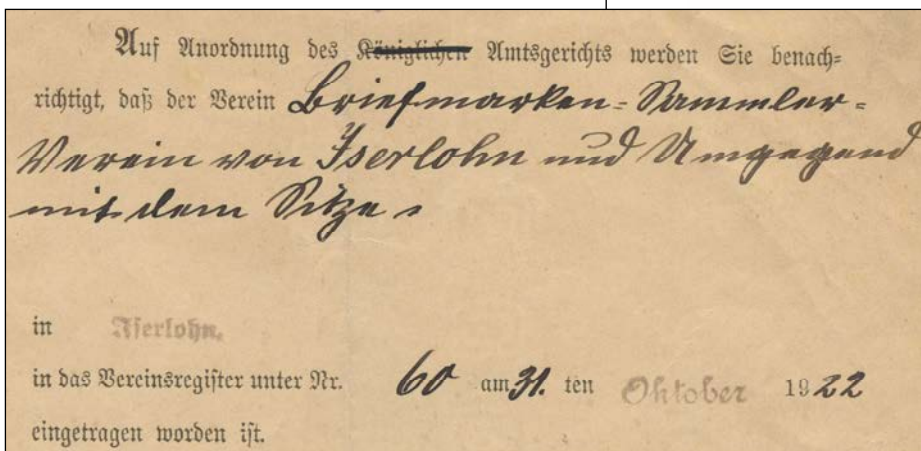 Auf Anordnung des Königlichen Amtsgerichts werden Sie benach-
richtigt, daß der Verein Briefmarken-Sammler-
Verein von Iserlohn und Umgegend
mit dem Sitze
in Iserlohn.
in das Vereinsregister unter Nr. 60 am 31. ten Oktober 1922
eingetragen worden ist.